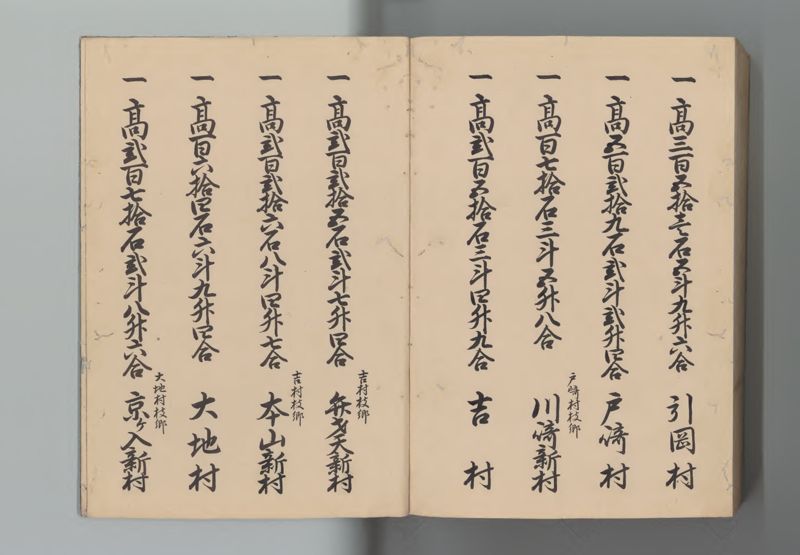 一高三百五拾壱石五斗九升六合 引岡村
一高五百弐拾九石弐斗弐升四合 戸﨑村
戸﨑村枝郷
一高百七拾石三斗五升八合 川﨑新村
一高弐百五拾石三斗四升九合 吉村
吉村枝郷
一高弐百弐拾五石弐斗七升四合 弁才天新村
吉村枝郷
一高弐百弐拾六石八斗四升七合 本山新村
一高百六拾四石六斗九升四合 大地村
大地村枝郷
一高弐百七拾石弐斗八升六合 京ケ入新村